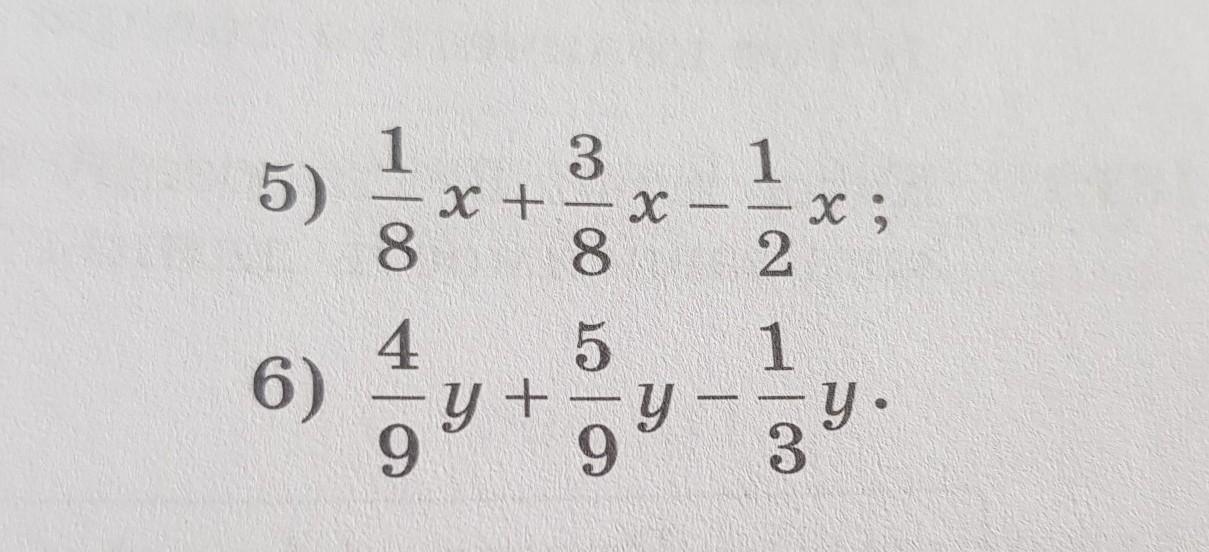 5) \frac{1}{8}x + \frac{3}{8}x - \frac{1}{2}x ;
6) \frac{4}{9}y + \frac{5}{9}y - \frac{1}{3}y .